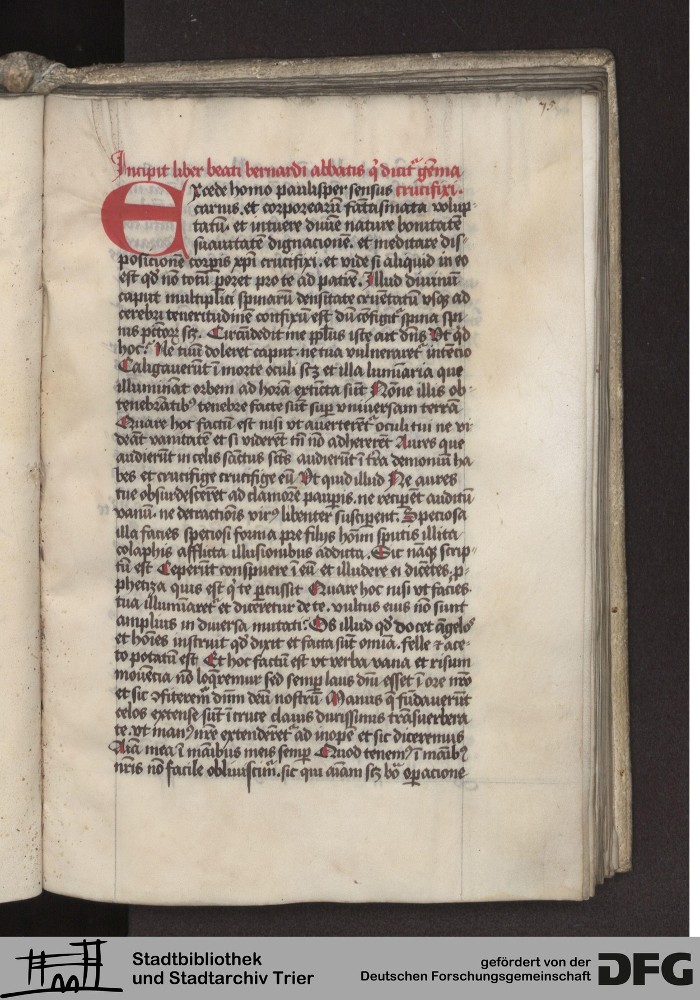 75
Incipit liber beati bernardi abbatis q̄ dicit᷑ gēma
Excede homo paulisper sensus crucifixi.
carnis. et corporearū fantasmata volup-
tatū. et intuere diuīe nature bonitatem
suauitatem dignacionē. et meditare dis-
posicionē corpīs xp̄i crucifixi. et vide si aliquid in eo
est qd̄ nō totū ꝓ̄ poret pro te ad patrē. Illud diuinum
caput multiplici spinarū densitate cruētatū vsqꝫ ad
cerebri teneritudinē confixū est dū cōfigit᷑ spina spi
nis pctōꝝ scꝫ. Circūdedit me pplūs iste ait dn̄s Vt qd̄
hoc. Ne tuū doleret caput. ne tua vulneraret᷑ intēcio
Caligauerūt ī morte oculi scꝫ et illa lumīaria que
illuminant orbem ad horam extīcta sūt Nōne illis ob-
tenebratibꝰ tenebre facte sūt suꝑ vniuersam terrā
Quare hoc factū est nisi vt auerterēt᷑ oculi tui ne vi
deāt vanitatē et si viderēt tn̄ nō adhererēt Aures que
audierūt in celis sāctus sctūs audierūt ī tr̄a demoniū ha
bes et crucifige crucifige eū Vt quid illud Ne aures
tue obsurdesceret ad clamorē pauꝑis. ne recipe͂t auditū
vanū. ne detractiōis virꝰ libenter suscipent. Speciosa
illa facies speciosi forma pre filijs hoīm sputis illita
colaphis afflicta illusionibus addicta. Sic naqꝫ scrip-
tū est Ceperūt conspuere ī eū et illudere ei dicētes. p-
phetiza quis est qͥ te ꝑcussit Quare hoc nisi vt facies
tua illumīaret᷑ et diceretur de te. vultus eius nō sunt
amplius in diuersa mutati. Os illud qd̄ docet āgelos
et hoīes instruit qd̄ dixit et facta sūt omīa. felle ⁊ ace-
to potatū est Et hoc factū est vt verba vana et risum
mouēcia nō loq̄remur sed semꝑ laus dn̄i esset ī ore nr̄o
et sic ꝯfiterem᷑ dn̄m deū nostrū Manus q̄ fūdauerūt
celos extense sūt ī cruce clauis durissimis trāsuerbera
te. vt manꝰ nr̄e extenderēt᷑ ad inopē et sic diceremus
Aīa mea ī maībus meis semꝑ Quod tenemꝰ ī maībꝰ
nr̄is nō facile obliuiscim᷑. sic qui aīam scꝫ bō oꝑacione
Stadtbibliothek
und Stadtarchiv Trier
gefördert von der
Deutschen Forschungsgemeinschaft
DFG